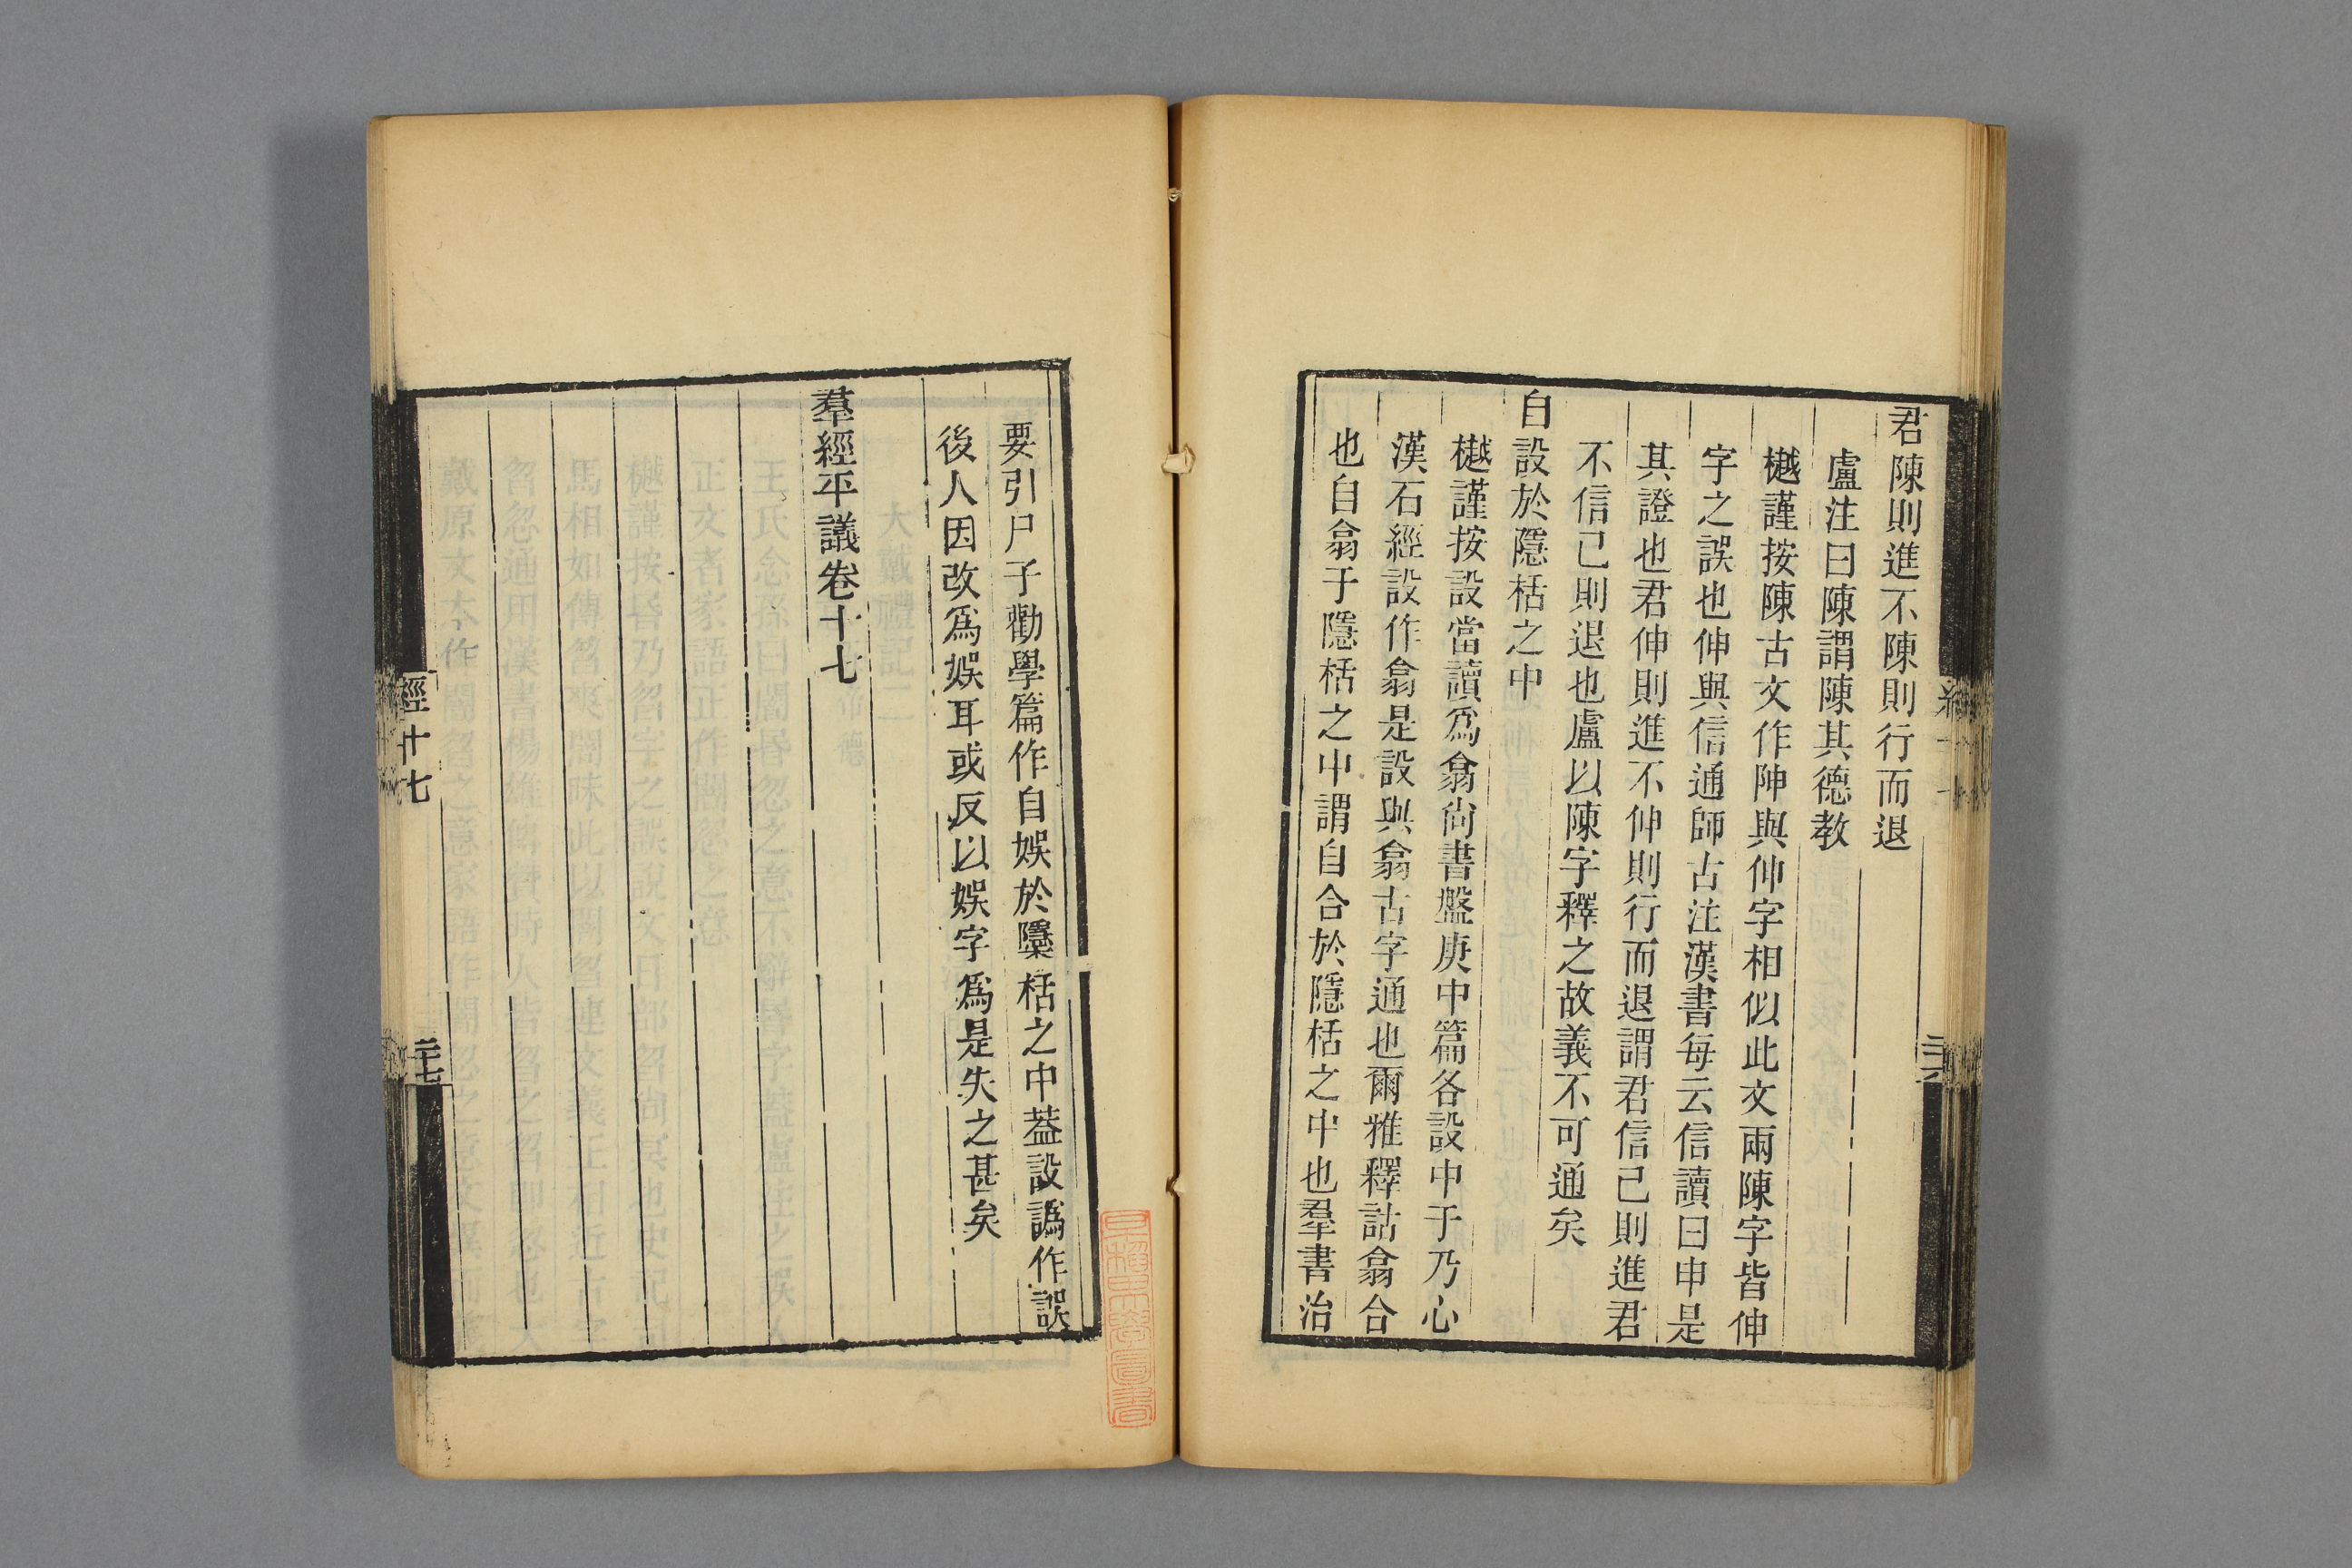 君陳則進不陳則行而退
盧注曰陳謂陳其德教
樾謹按陳古文作陣與伸字相似此文兩陳字皆伸
字之誤也伸與信通師古注漢書每云信讀曰申是
其證也君伸則進不伸則行而退謂君信己則進君
不信己則退也盧以陳字釋之故義不可通矣
自設於隱栝之中
樾謹按設當讀爲翕尙書盤庚中篇各設中于乃心
漢石經設作翕是設與翕古字通也爾雅釋詁翕合
也自翕于隱栝之中謂自合於隱栝之中也羣書治
要引尸子勸學篇作自娛於檃栝之中葢設譌作誤
後人因改爲娛耳或反以娛字爲是失之甚矣
羣經平議卷十七
經十七
二十七